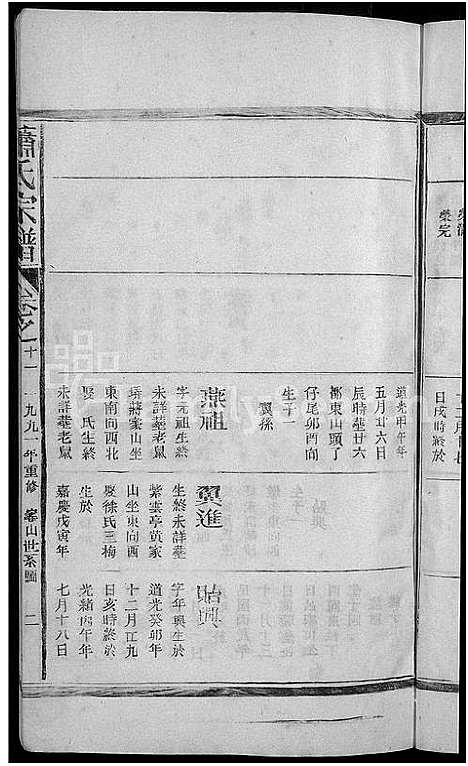 榮完
日戌時終於
道光甲午年
五月廿六日
辰時葬廿六
都東山頭了
仔尾卯酉向
生子一
翼孫
燕祖
字元祖生終
未詳葬老鼠
塝蔣家山坐
東南向西北
娶 氏生終
未詳葬老鼠
翼進
生終未詳葬
紫雲亭黃家
山坐東向西
娶徐氏三梅
生於
嘉慶戊寅年
貽興
字年興生於
道光癸卯年
十二月江九
日亥時終於
光緒丙午年
七月十八日
蕭氏宗譜
卷之十一
一九九一年重修
世系圖
二